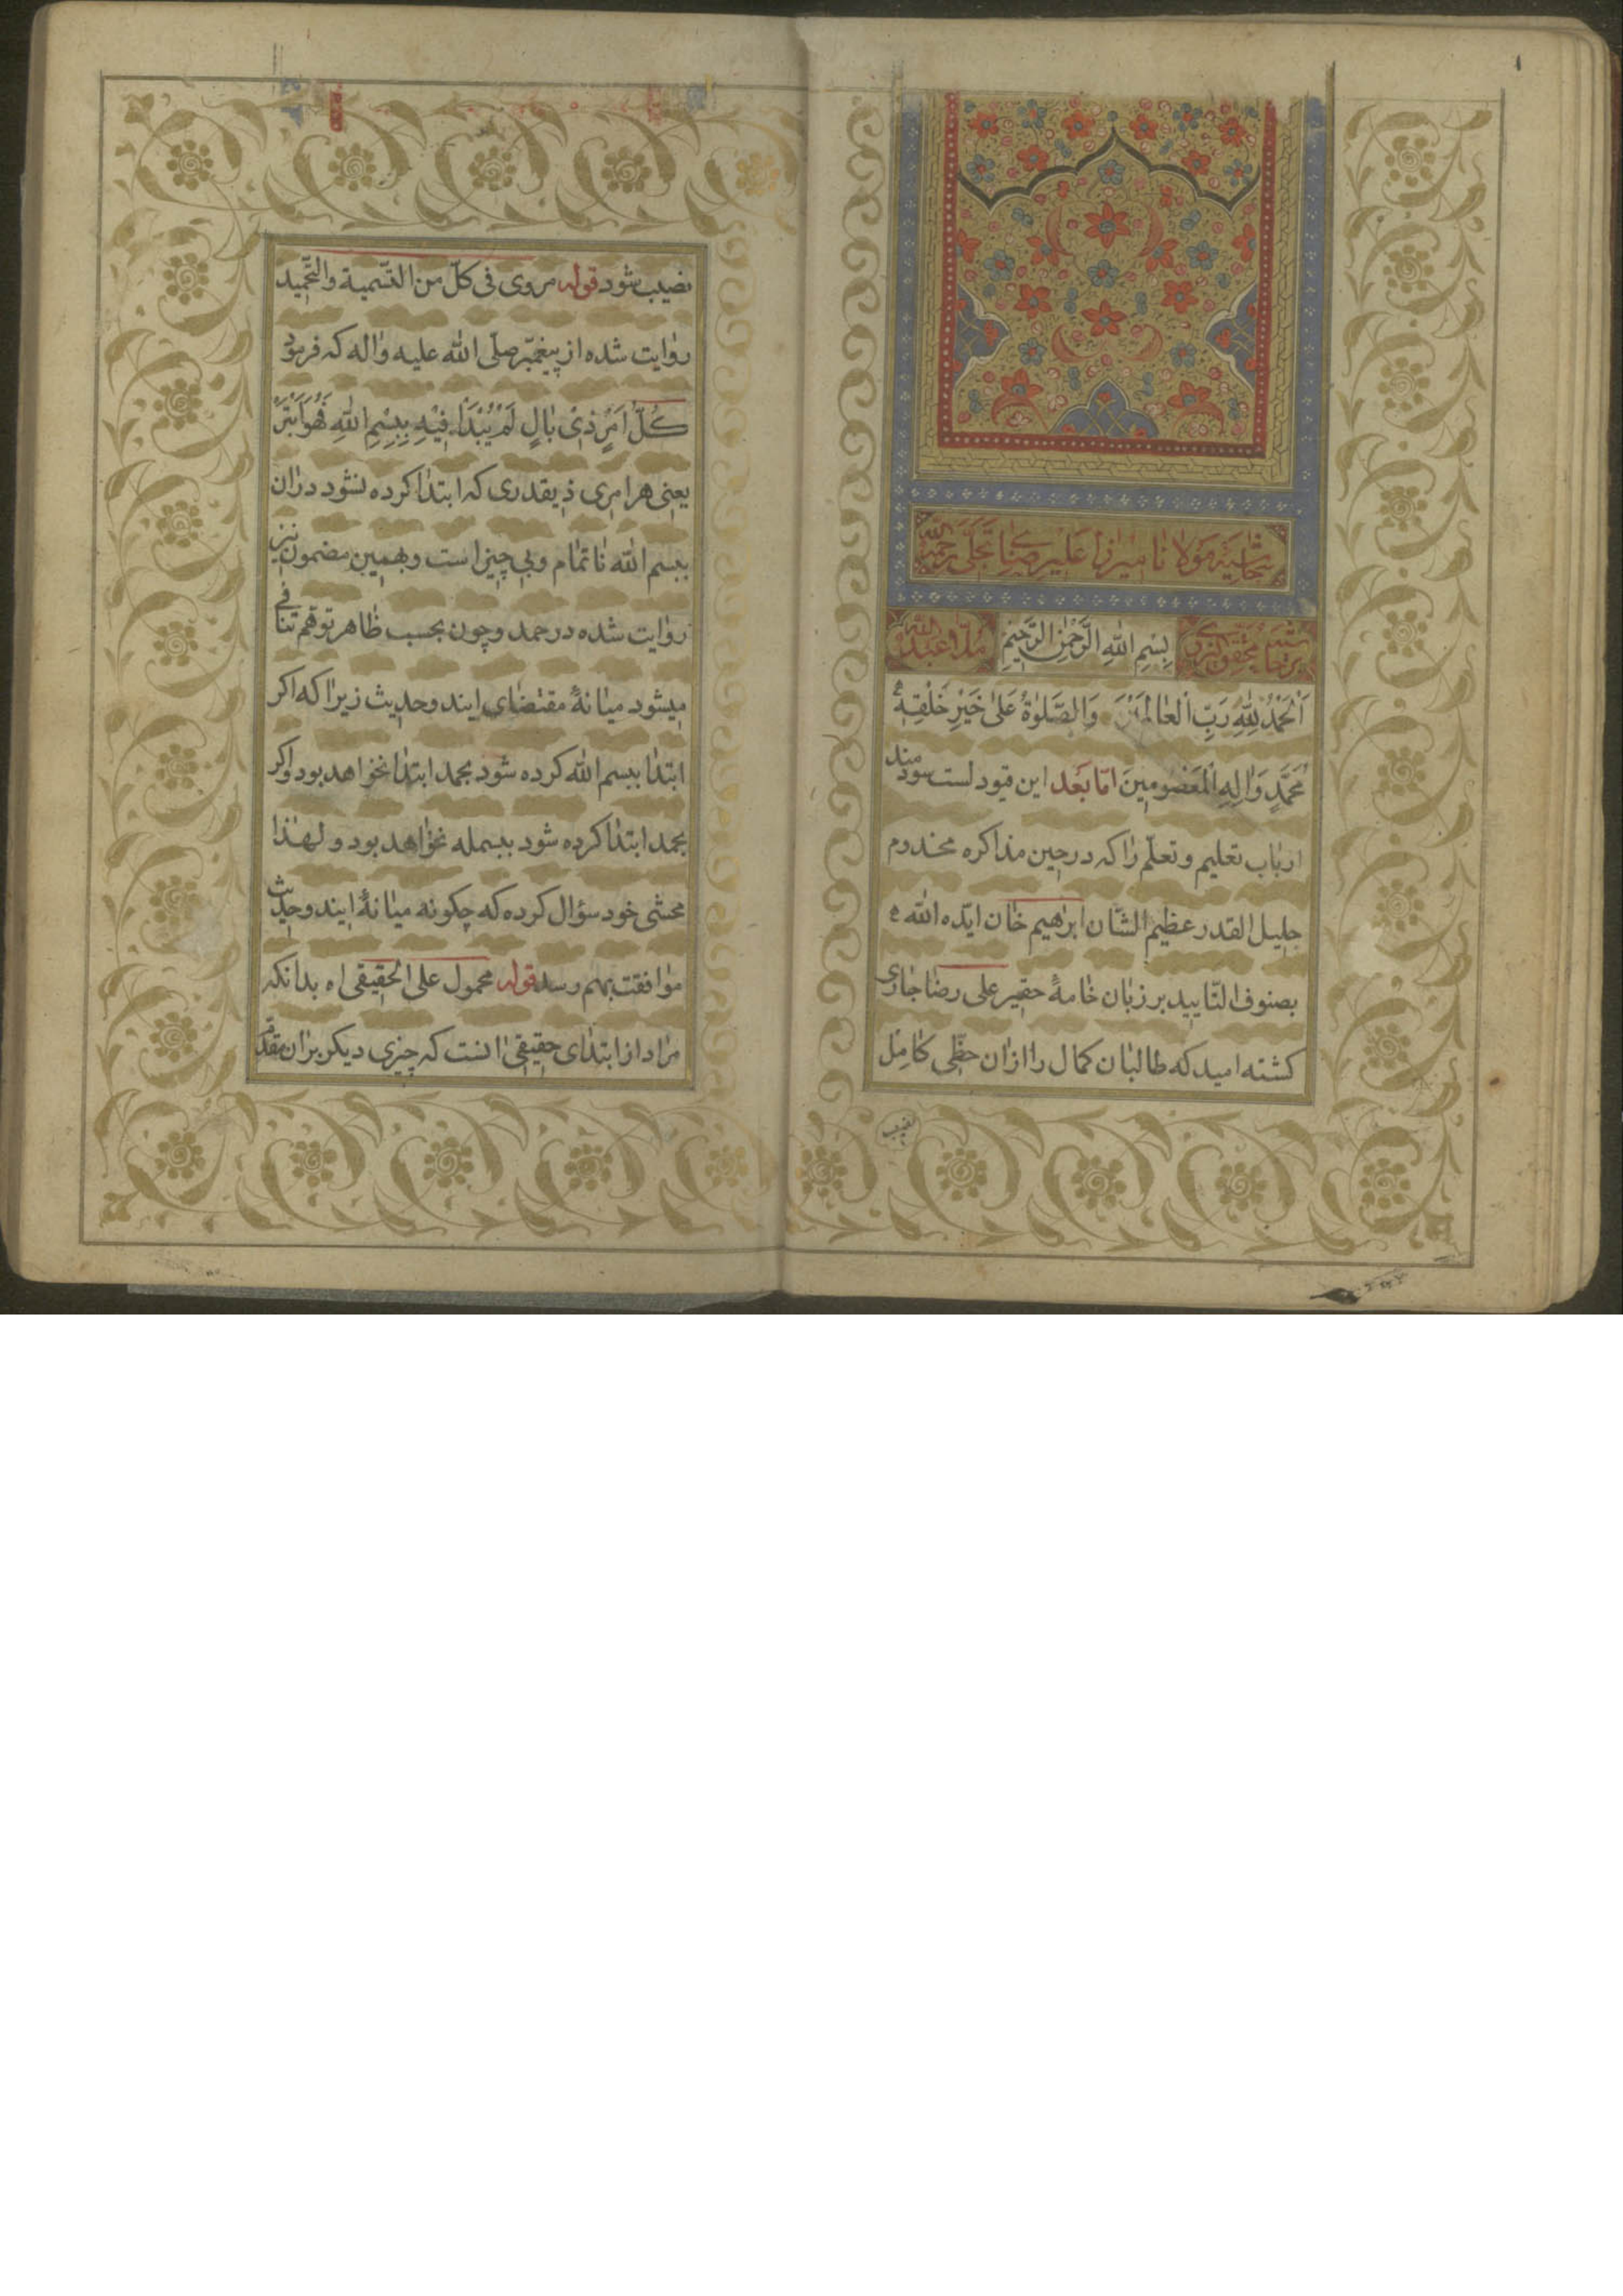 ١
حاشیة مولانا میرزا علیرضای تجلی رحمه الله
بسم الله الرحمن الرحیم
ملا عبدالله
اَلْحَمْدُ لِلّٰهِ رَبِّ الْعٰالَمینَ وَالصَّلوٰةُ عَلیٰ خَیْرِ خَلْقِهِ
مُحَمَّدٍ وَاٰلِهِ الْمَعْصُومینَ امّا بَعْد این قیود لست سودمند
ارباب تعلیم و تعلّم را که در حین مذاکره مخدوم
جلیل القدر عظیم الشّان ابرٰهیم خٰان ایّده الله
بصنوف التّایید بر زبٰان خٰامهٔ حقیر علی رضٰا جٰاری
کشته امید که طالبٰان کمٰال را ازان حظّی کٰامِل
نصیب
نصیب شود قوله مروی فی کلّ من التّسمیة والتّحمید
روٰایت شده از پیغمبر صلّی الله علیه واٰله که فرمود
کُلُّ اَمْرٍ ذی بٰالٍ لَمْ یُبْدَأْ فیٖهِ بِبِسْمِ اللّٰهِ فَهُوَ اَبْتَرُ
یعنی هر امری ذیقدری که ابتدٰا کرده نشود درٰان
ببسم الله نٰاتمٰام و بی چیز است و بهمین مضمون نیز
روٰایت شده در حمد و چون بحسب ظٰاهر توهّم تنٰافی
میشود میٰانهٔ مقتضٰای ایندو حدیث زیرٰا که اکر
ابتدٰا ببسم الله کرده شود بحمد ابتدٰا نخوٰاهد بود و اکر
بحمد ابتدٰا کرده شود ببسمله نخوٰاهد بود و لهٰذا
محشی خود سؤال کرده که چکونه میٰانهٔ ایندو حدیث
موٰافقت بهم رسد قوله محمول علی الحقیقی اه بدانکه
مرٰاد از ابتدٰای حقیقی اٰنست که چیزی دیکر برٰان مقدّم